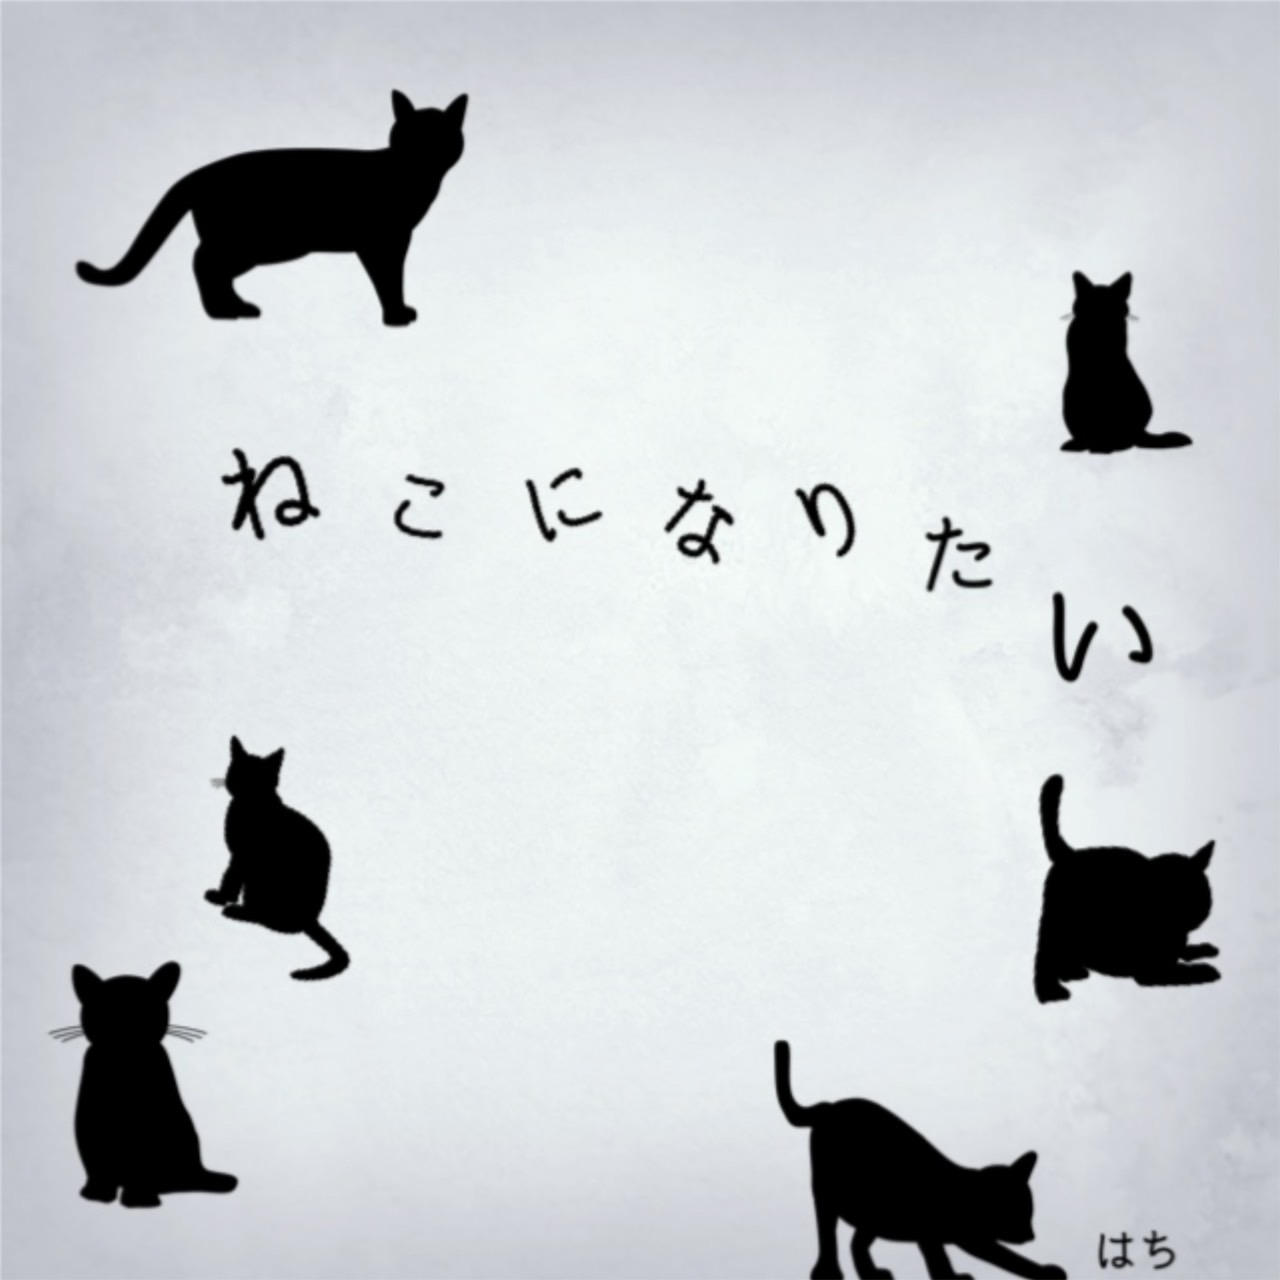 ねこになりたい
はち